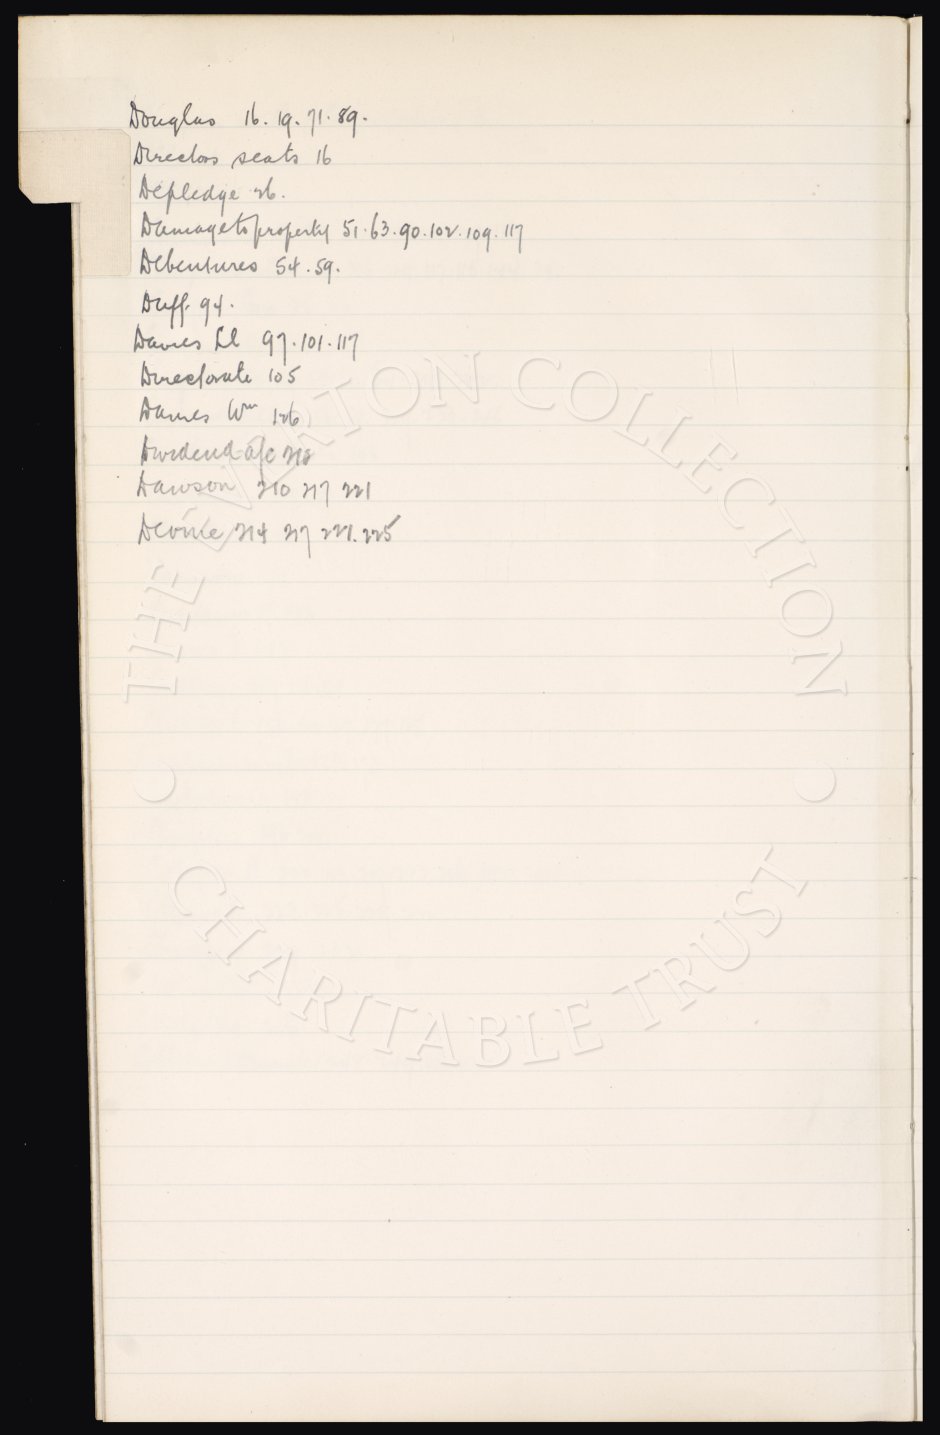 Douglas 16. 19. 71. 89.
Directors seats 16
Depledge 26.
Damage to property 51. 63. 90. 102. 109. 117
Debentures 54. 59.
Duff. 94.
Davies Ll 97. 101. 117
Directorate 105
Davies Wm 126
Dividend a/c 218
Dawson 210 217 221
Deville 214 217 221. 225
THE EVERTON COLLECTION
CHARITABLE TRUST